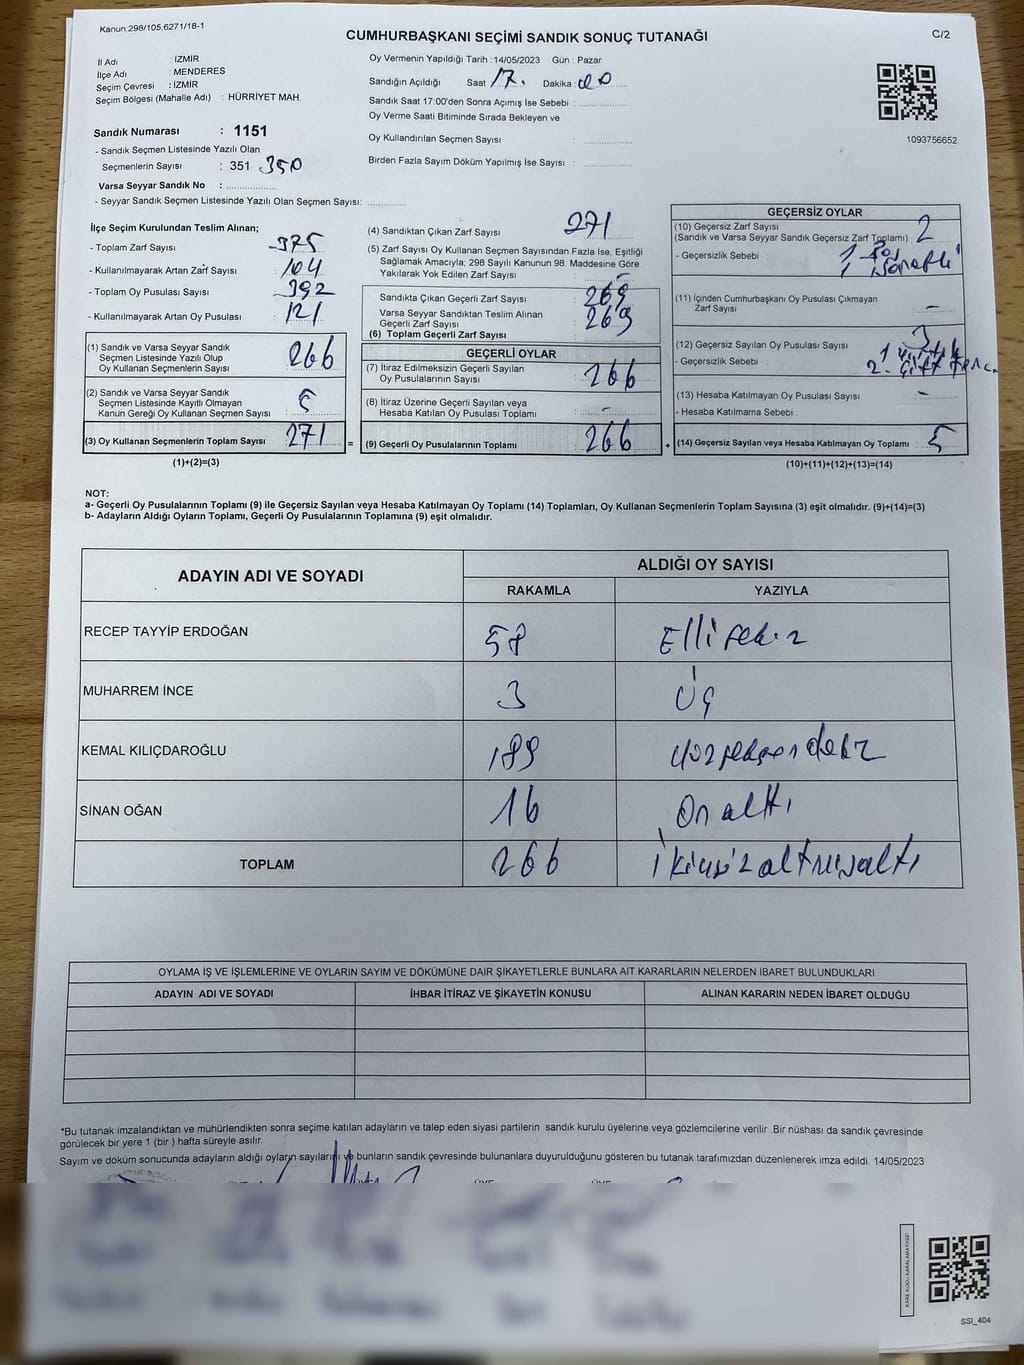 Kanun:298/105,6271/18-1
CUMHURBAŞKANI SEÇİMİ SANDIK SONUÇ TUTANAĞI
C/2
İl Adı : İZMİR
İlçe Adı : MENDERES
Seçim Çevresi : İZMİR
Seçim Bölgesi (Mahalle Adı) : HÜRRİYET MAH.
Oy Vermenin Yapıldığı Tarih : 14/05/2023 Gün : Pazar
Sandığın Açıldığı Saat 17. Dakika : 00
Sandık Saat 17:00'den Sonra Açımış İse Sebebi :
Oy Verme Saati Bitiminde Sırada Bekleyen ve
Oy Kullandırılan Seçmen Sayısı :
Birden Fazla Sayım Döküm Yapılmış İse Sayısı :
1093756652
Sandık Numarası : 1151
- Sandık Seçmen Listesinde Yazılı Olan
Seçmenlerin Sayısı : 351 350
Varsa Seyyar Sandık No :
- Seyyar Sandık Seçmen Listesinde Yazılı Olan Seçmen Sayısı:
İlçe Seçim Kurulundan Teslim Alınan;
- Toplam Zarf Sayısı : 375
- Kullanılmayarak Artan Zarf Sayısı : 104
- Toplam Oy Pusulası Sayısı : 392
- Kullanılmayarak Artan Oy Pusulası : 121
(1) Sandık ve Varsa Seyyar Sandık
Seçmen Listesinde Yazılı Olup
Oy Kullanan Seçmenlerin Sayısı : 266
(2) Sandık ve Varsa Seyyar Sandık
Seçmen Listesinde Kayıtlı Olmayan
Kanun Gereği Oy Kullanan Seçmen Sayısı : 5
(3) Oy Kullanan Seçmenlerin Toplam Sayısı : 271 =
(1)+(2)=(3)
(4) Sandıktan Çıkan Zarf Sayısı : 271
(5) Zarf Sayısı Oy Kullanan Seçmen Sayısından Fazla İse, Eşitliği
Sağlamak Amacıyla; 298 Sayılı Kanunun 98. Maddesine Göre
Yakılarak Yok Edilen Zarf Sayısı : -
Sandıkta Çıkan Geçerli Zarf Sayısı : 269
Varsa Seyyar Sandıktan Teslim Alınan
Geçerli Zarf Sayısı
(6) Toplam Geçerli Zarf Sayısı : 269
GEÇERLİ OYLAR
(7) İtiraz Edilmeksizin Geçerli Sayılan
Oy Pusulalarının Sayısı : 266
(8) İtiraz Üzerine Geçerli Sayılan veya
Hesaba Katılan Oy Pusulası Toplamı : -
(9) Geçerli Oy Pusulalarının Toplamı : 266 +
GEÇERSİZ OYLAR
(10) Geçersiz Zarf Sayısı
(Sandık ve Varsa Seyyar Sandık Geçersiz Zarf Toplamı) : 2
- Geçersizlik Sebebi : 1
1
(11) İçinden Cumhurbaşkanı Oy Pusulası Çıkmayan
Zarf Sayısı : -
(12) Geçersiz Sayılan Oy Pusulası Sayısı : 3
- Geçersizlik Sebebi : 1
2
(13) Hesaba Katılmayan Oy Pusulası Sayısı : -
- Hesaba Katılmama Sebebi :
(14) Geçersiz Sayılan veya Hesaba Katılmayan Oy Toplamı : 5
(10)+(11)+(12)+(13)=(14)
NOT:
a- Geçerli Oy Pusulalarının Toplamı (9) ile Geçersiz Sayılan veya Hesaba Katılmayan Oy Toplamı (14) Toplamları, Oy Kullanan Seçmenlerin Toplam Sayısına (3) eşit olmalıdır. (9)+(14)=(3)
b- Adayların Aldığı Oyların Toplamı, Geçerli Oy Pusulalarının Toplamına (9) eşit olmalıdır.
ADAYIN ADI VE SOYADI
ALDIĞI OY SAYISI
RAKAMLA YAZIYLA
RECEP TAYYİP ERDOĞAN 58 Ellisekiz
MUHARREM İNCE 3 Üç
KEMAL KILIÇDAROĞLU 189 Yüzseksendokuz
SİNAN OĞAN 16 Onaltı
TOPLAM 266 İkiyüzaltmışaltı
OYLAMA İŞ VE İŞLEMLERİNE VE OYLARIN SAYIM VE DÖKÜMÜNE DAİR ŞİKAYETLERLE BUNLARA AİT KARARLARIN NELERDEN İBARET BULUNDUKLARI
ADAYIN ADI VE SOYADI İHBAR İTİRAZ VE ŞİKAYETİN KONUSU ALINAN KARARIN NEDEN İBARET OLDUĞU
*Bu tutanak imzalandıktan ve mühürlendikten sonra seçime katılan adayların ve talep eden siyasi partilerin sandık kurulu üyelerine veya gözlemcilerine verilir .Bir nüshası da sandık çevresinde
görülecek bir yere 1 (bir ) hafta süreyle asılır.
Sayım ve döküm sonucunda adayların aldığı oyların sayılarını ve bunların sandık çevresinde bulunanlara duyurulduğunu gösteren bu tutanak tarafımızdan düzenlenerek imza edildi. 14/05/2023
KARE KODU KARALAMAYINIZ!
SSİ_404